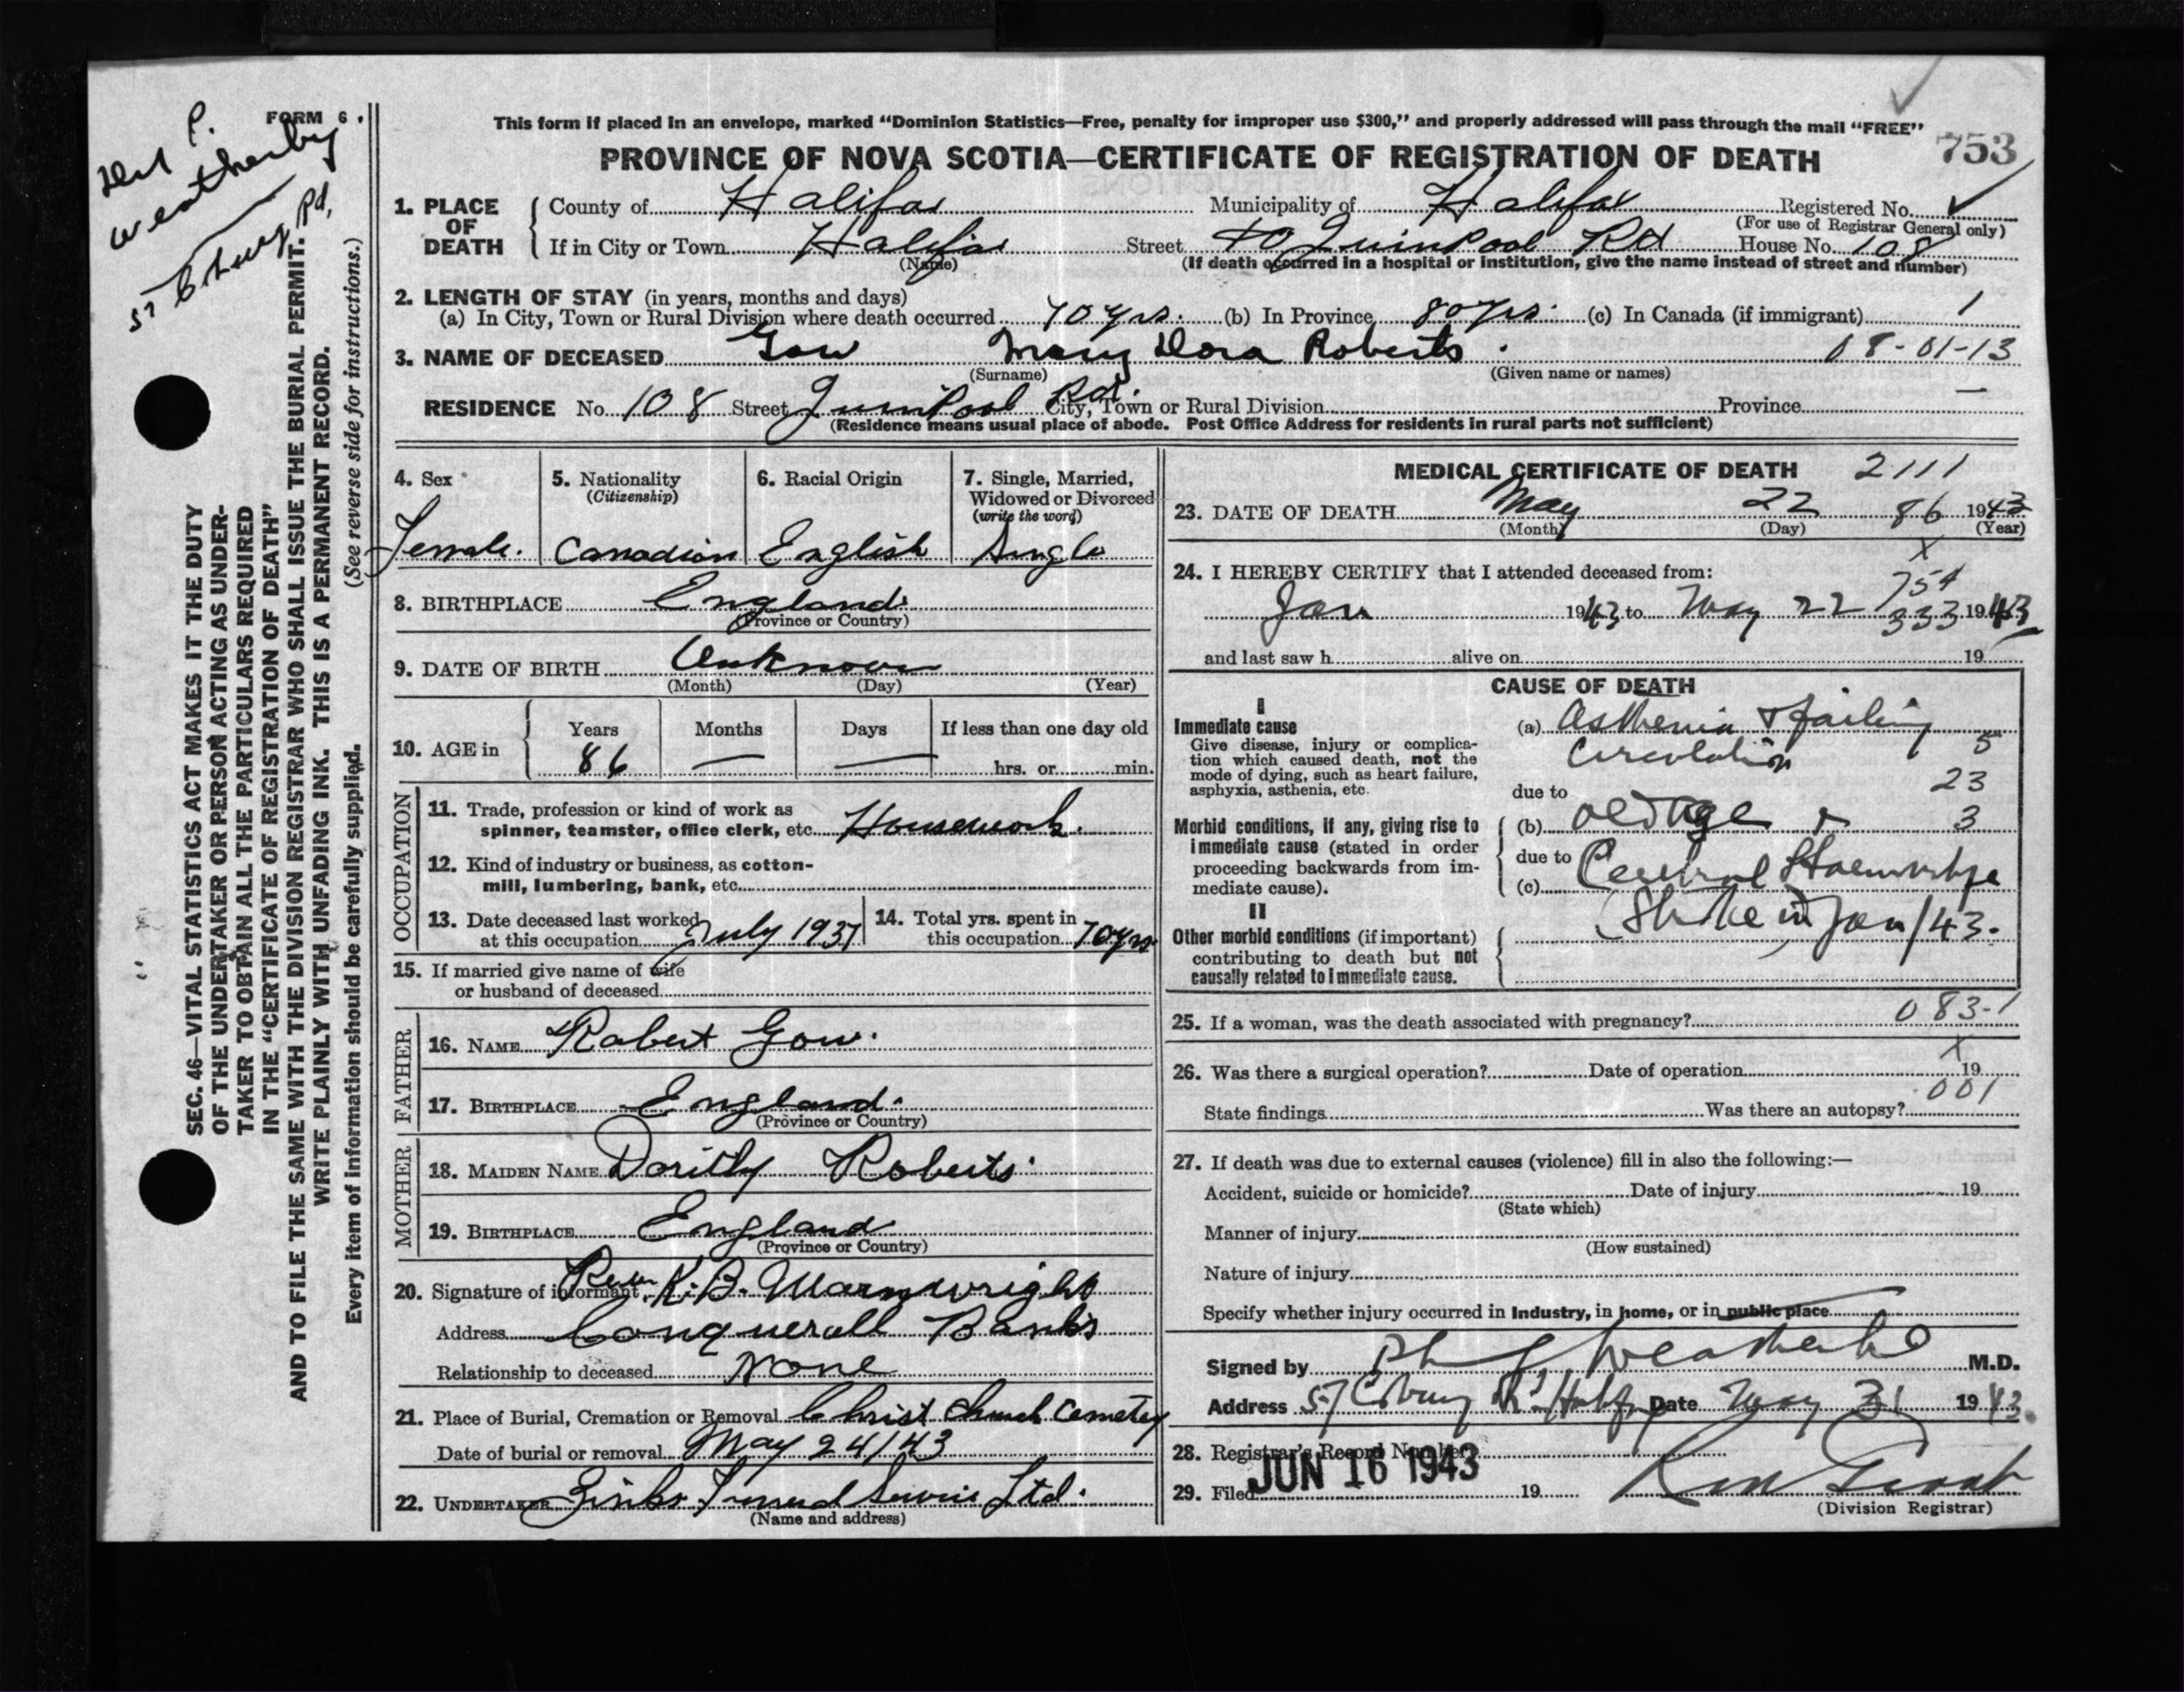 FORM 6.
Weatherby
57
Rd.
SEC. 46—VITAL STATISTICS ACT MAKES IT THE DUTY
OF THE UNDERTAKER OR PERSON ACTING AS UNDER-
TAKER TO OBTAIN ALL THE PARTICULARS REQUIRED
IN THE "CERTIFICATE OF REGISTRATION OF DEATH"
AND TO FILE THE SAME WITH THE DIVISION REGISTRAR WHO SHALL ISSUE THE BURIAL PERMIT.
WRITE PLAINLY WITH UNFADING INK. THIS IS A PERMANENT RECORD.
Every item of information should be carefully supplied. (See reverse side for instructions.)
This form if placed in an envelope, marked "Dominion Statistics—Free, penalty for improper use $300," and properly addressed will pass through the mail "FREE"
753
PROVINCE OF NOVA SCOTIA—CERTIFICATE OF REGISTRATION OF DEATH
1. PLACE OF DEATH County of Halifax Municipality of Halifax Registered No.
(For use of Registrar General only)
If in City or Town Halifax Street Quinpool Rd House No. 108
(Name) (If death occurred in a hospital or institution, give the name instead of street and number)
2. LENGTH OF STAY (in years, months and days)
(a) In City, Town or Rural Division where death occurred 70 yrs. (b) In Province 80 yrs. (c) In Canada (if immigrant) 1
3. NAME OF DECEASED Gow Mary Dora Roberts. 08-01-13
(Surname) (Given name or names)
RESIDENCE No. 108 Street Quinpool Rd. City, Town or Rural Division Province —
(Residence means usual place of abode. Post Office Address for residents in rural parts not sufficient)
4. Sex
Female.
5. Nationality
(Citizenship)
Canadian
6. Racial Origin
English
7. Single, Married,
Widowed or Divorced
(write the word)
Single
8. BIRTHPLACE England
(Province or Country)
9. DATE OF BIRTH Unknown
(Month) (Day) (Year)
10. AGE in Years Months Days If less than one day old
86 — — hrs. or min.
OCCUPATION
11. Trade, profession or kind of work as
spinner, teamster, office clerk, etc. Housework.
12. Kind of industry or business, as cotton-
mill, lumbering, bank, etc.
13. Date deceased last worked
at this occupation July 1937
14. Total yrs. spent in
this occupation 70 yrs.
15. If married give name of wife
or husband of deceased
FATHER
16. NAME Robert Gow.
17. BIRTHPLACE England.
(Province or Country)
MOTHER
18. MAIDEN NAME Dorithy Roberts.
19. BIRTHPLACE England
(Province or Country)
20. Signature of informant. K. B. Wainwright
Address Conquerall Banks
Relationship to deceased None
21. Place of Burial, Cremation or Removal Christ Church Cemetery
Date of burial or removal May 24/43
22. UNDERTAKER Funeral Service Ltd.
(Name and address)
MEDICAL CERTIFICATE OF DEATH 2111
23. DATE OF DEATH May 22 86 1943
(Month) (Day) (Year)
X
24. I HEREBY CERTIFY that I attended deceased from:
754
Jan 1943 to May 22 333 1943
and last saw h alive on 19
CAUSE OF DEATH
I
Immediate cause
Give disease, injury or complica-
tion which caused death, not the
mode of dying, such as heart failure,
asphyxia, asthenia, etc.
(a) Asthenia & failing
circulation 5
due to 23
Morbid conditions, if any, giving rise to
immediate cause (stated in order
proceeding backwards from im-
mediate cause).
(b) old age & 3
due to
(c) Cerebral Haemorrhage
(Stroke in Jan/43.
II
Other morbid conditions (if important)
contributing to death but not
causally related to immediate cause.
083-1
25. If a woman, was the death associated with pregnancy?
X
26. Was there a surgical operation? Date of operation 19
001
State findings Was there an autopsy?
27. If death was due to external causes (violence) fill in also the following:—
Accident, suicide or homicide? Date of injury 19
(State which)
Manner of injury
(How sustained)
Nature of injury
Specify whether injury occurred in Industry, in home, or in public place
Signed by Weatherbe M.D.
Address 57 Coburg Rd Halifax Date May 31 1943.
28. Registrar's Record Number
JUN 16 1943
29. Filed 19
(Division Registrar)